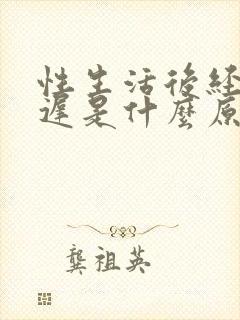 性生活後経
遅是什麼原
龔祖英